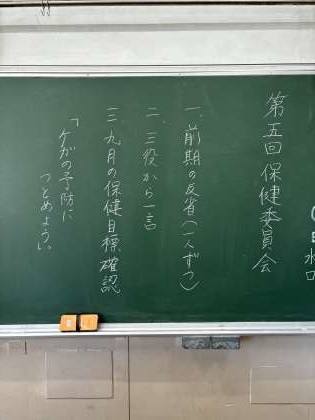 第五回保健委員会
一、前期の反省(一人ずつ)
二、三役から一言
三、九月の保健目標確認
「ケガの予防に
つとめよう」